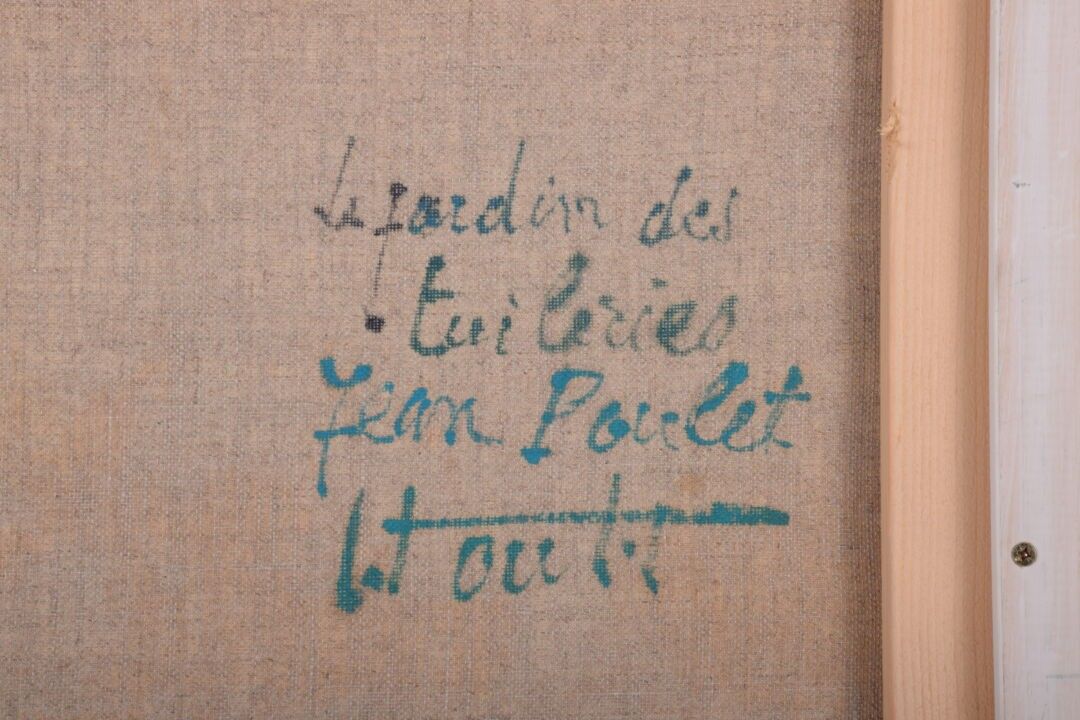 Le jardin des
tuileries
Jean Poulet